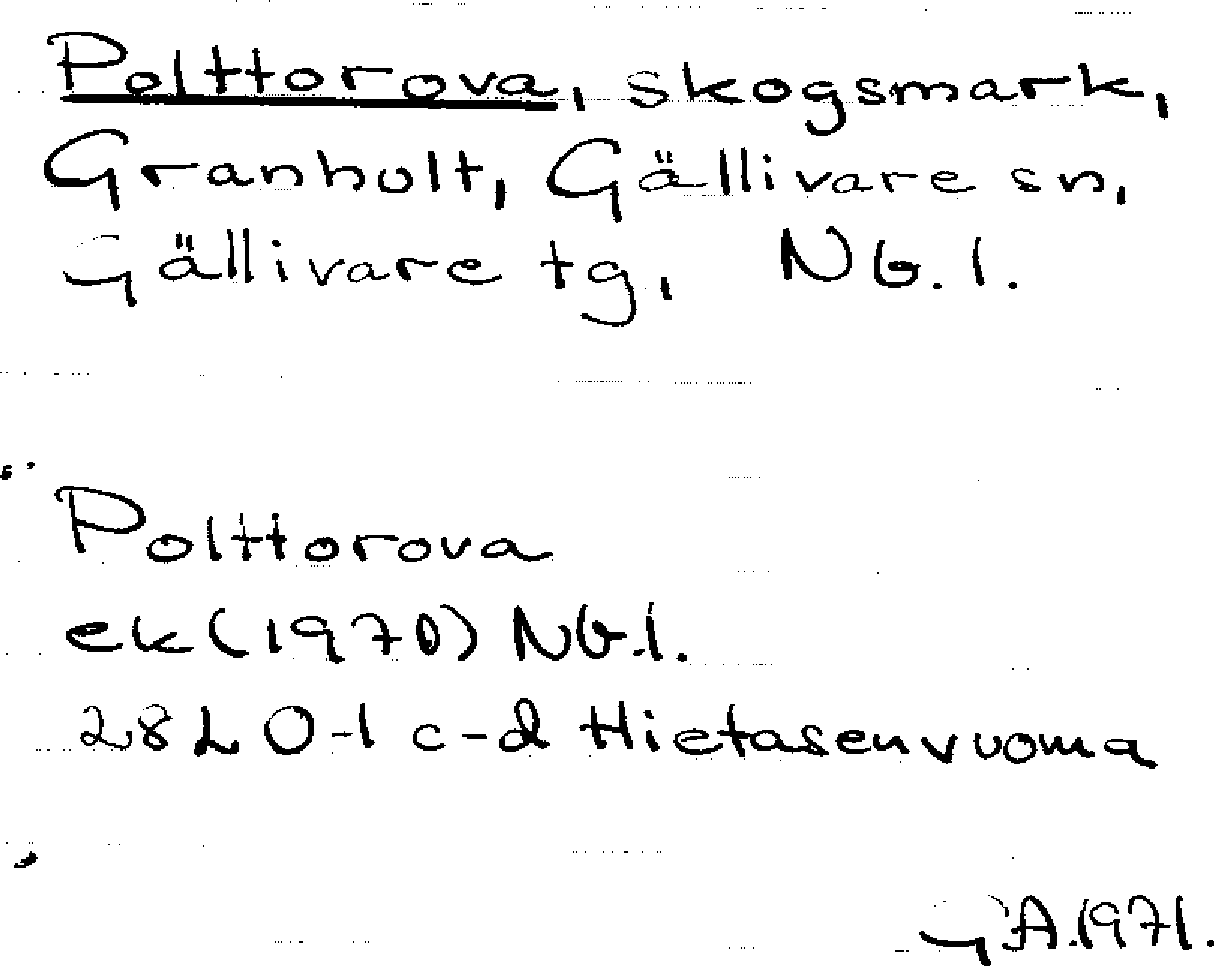 Polttorova, skogsmark,
Granholt, Gällivare sn,
Gällivare tg, Nb.l.
Polttorova
ek (1970) Nb.l.
28 L 0-1 c-d Hietasenvuoma
GA.1971.